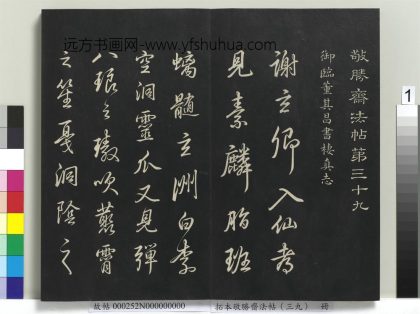 远方书画网-www.yfshuhua.com
敬勝齋法帖第三十九
御臨董其昌書棲真志
謝玄卿入仙
見素麟脂班
螭髓玄洲白柰
空洞靈瓜又見彈
八琅之璈吹霄
之笙戛洞陰之
1
故帖 000252N000000000 拓本敬勝齋法帖(三九)